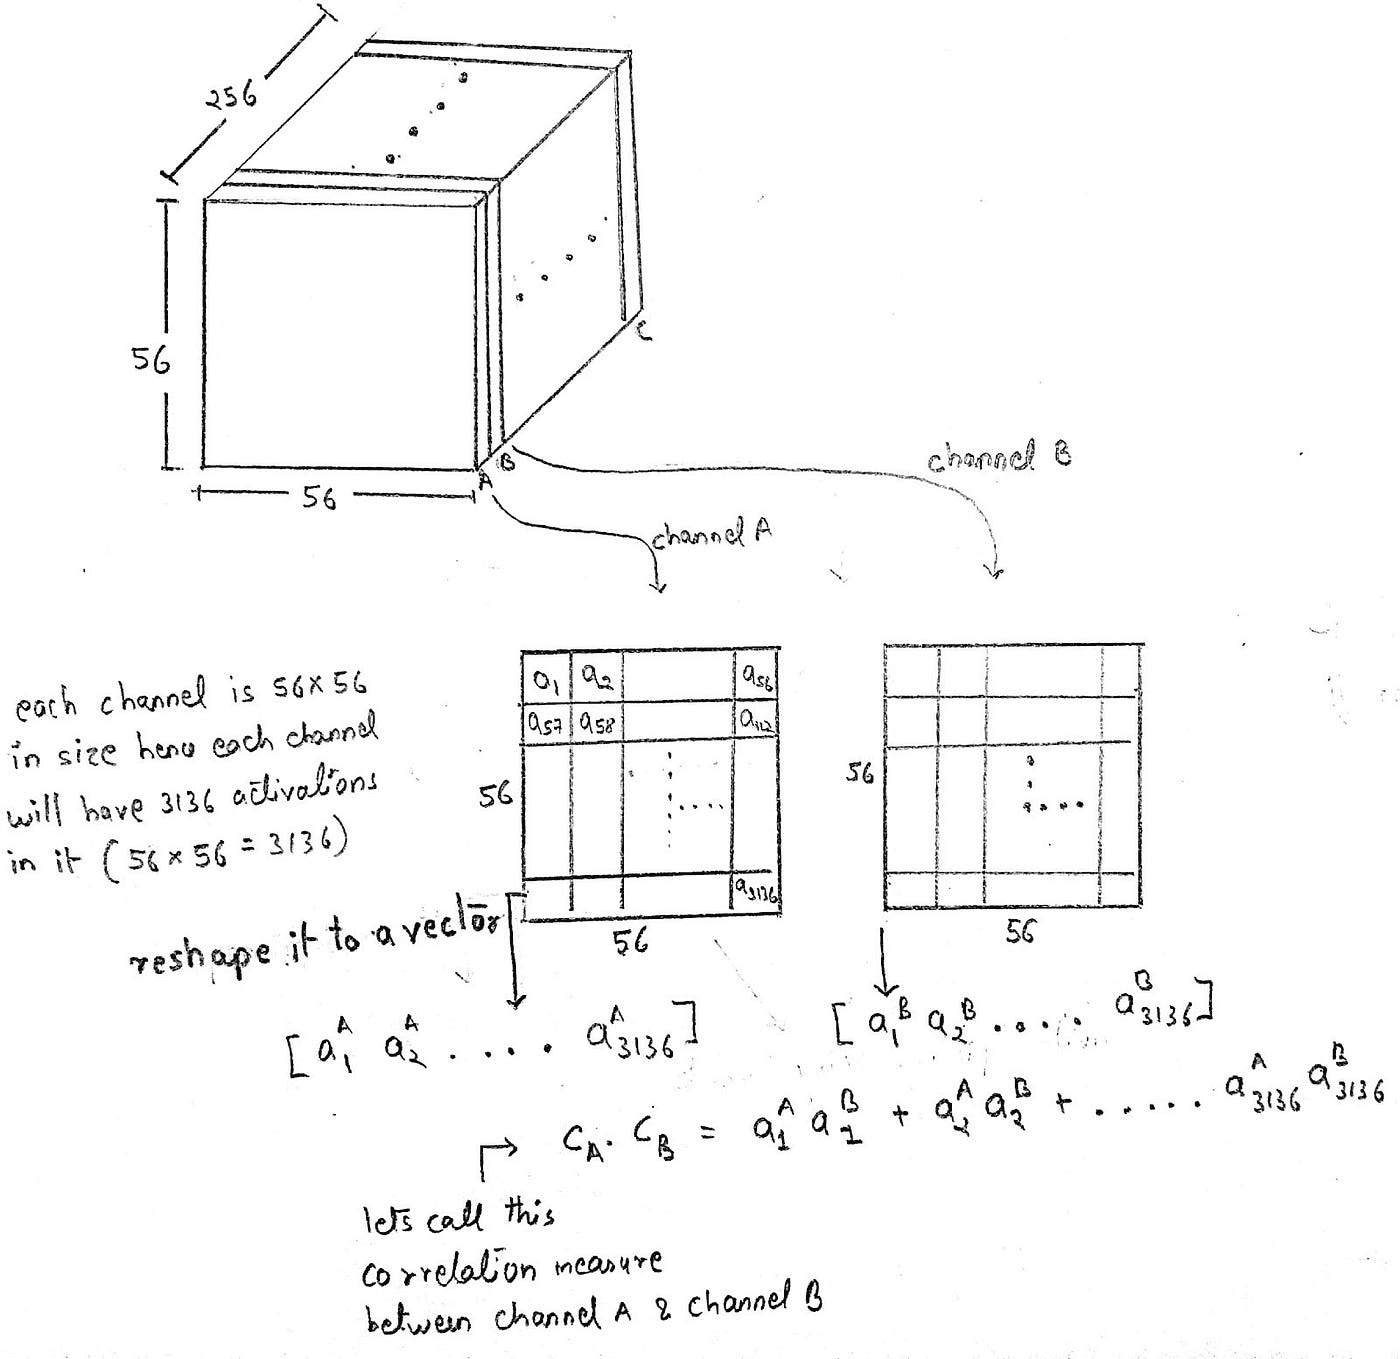 256
56
56
A
B
C
channel B
channel A
each channel is 56×56
in size hence each channel
will have 3136 activations
in it (56 × 56 = 3136)
reshape it to a vector
a₁ a₂ a₅₆
a₅₇ a₅₈ a₁₁₂
a₃₁₃₆
56
56
56
56
[a₁ᴬ a₂ᴬ .... a₃₁₃₆ᴬ]
[a₁ᴮ a₂ᴮ ..... a₃₁₃₆ᴮ]
→ C_A . C_B = a₁ᴬ a₁ᴮ + a₂ᴬ a₂ᴮ + ...... a₃₁₃₆ᴬ a₃₁₃₆ᴮ
lets call this
correlation measure
between channel A & channel B